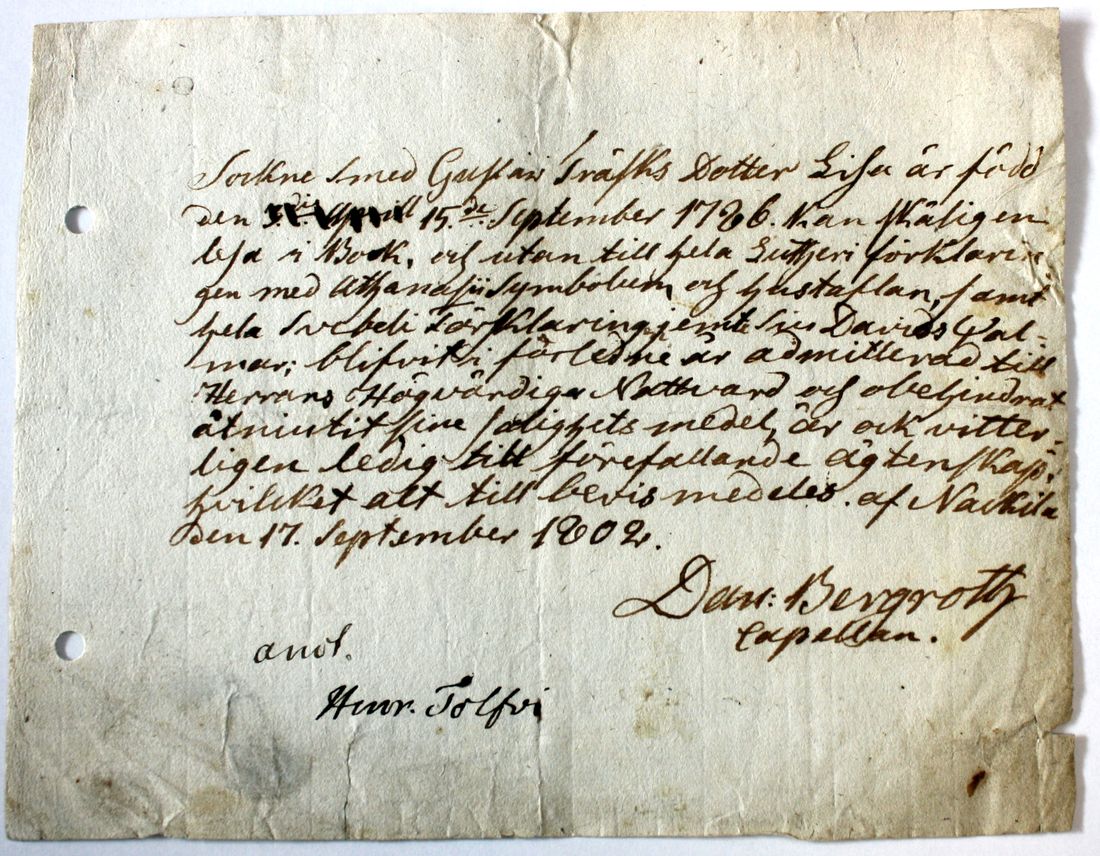 Sockne smed Gustav Träsks Dotter Lisa är född
den 15.de September 1786. Kan skäligen
läsa i Book, och utan till hela Lutheri förklarin
gen med Athanasii Symbolum, och hustaflan, samt
hela Svebeli Förklaring jemte Siu Davids Psal-
mar; blifvit i förledne år admitterad till
Herrans Högvärdiga Nattvard och obehindrat
åtniutit sine salighets medel, är ock vitter-
ligen ledig till förefallande ägtenskap,
hvilcket alt till bevis medeles. af Nackila
den 17. September 1802.
Dan: Bergroth
Capellan.
anot.
Henr. Tolfvi